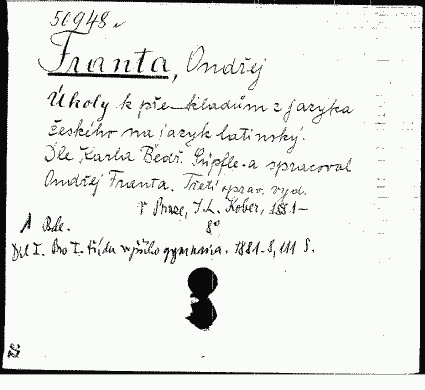 50948
Franta, Ondřej
Úkoly k překladům z jazyka
českého na jazyk latinský.
Dle Karla Bedř. Süpfle-a spracoval
Ondřej Franta. Třetí oprav. vyd.
v Praze, I. L. Kober, 1881–
8°
1 Bde.
Díl I. Pro I. třídu vyššího gymnasia. 1881. 8, 111 S.